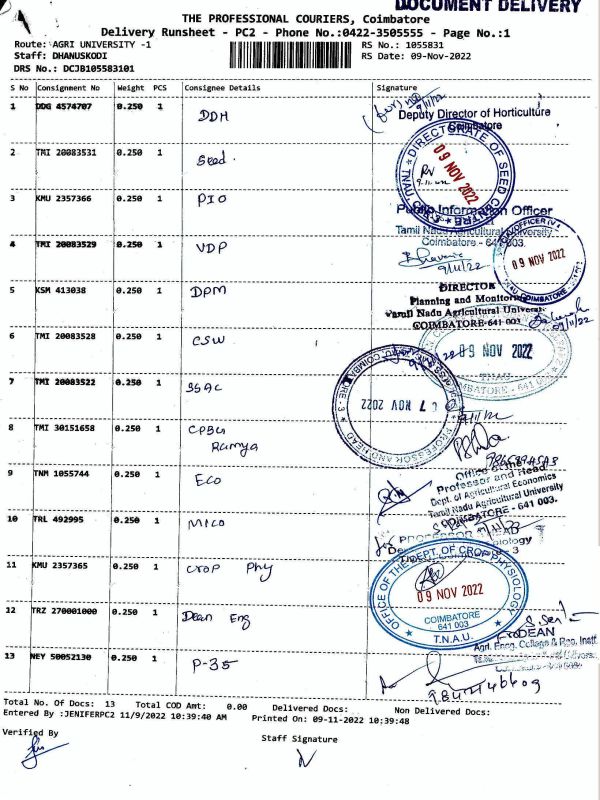 DOCUMENT DELIVERY
THE PROFESSIONAL COURIERS, Coimbatore
Delivery Runsheet - PC2 - Phone No.:0422-3505555 - Page No.:1
Route: AGRI UNIVERSITY -1
RS No.: 1055831
Staff: DHANUSKODI
RS Date: 09-Nov-2022
DRS No.: DCJB105583101
S No Consignment No Weight PCS Consignee Details Signature
1 DDG 4574707 0.250 1 DDH
Deputy Director of Horticulture
Coimbatore
2 TMI 20083531 0.250 1 Seed
DIRECTORATE OF SEED
09 NOV 2022
3 KMU 2357366 0.250 1 PIO
Public Information Officer
Tamil Nadu Agricultural University
Coimbatore - 641 003.
4 TMI 20083529 0.250 1 VDP
9/11/22
09 NOV 2022
COIMBATORE
5 KSM 413038 0.250 1 DPM
DIRECTOR
Planning and Monitoring
Tamil Nadu Agricultural Univers
COIMBATORE-641 003
09/11/22
6 TMI 20083528 0.250 1 CSW
09 NOV 2022
T.N.A.U.
7 TMI 20083522 0.250 1 SSAC
7 NOV 2022
PROFESSOR AND HEAD
8 TMI 30151658 0.250 1 CPBG
Ramya
9 TNM 1055744 0.250 1 ECO
Office of the
Professor and Head
Dept. of Agricultural Economics
Tamil Nadu Agricultural University
COIMBATORE - 641 003.
10 TRL 492995 0.250 1 MICO
11 KMU 2357365 0.250 1 Crop Phy
OFFICE OF THE DEPT. OF CROP PHYSIOLOGY
09 NOV 2022
COIMBATORE
641 003
T.N.A.U.
12 TRZ 270001000 0.250 1 Dean Eng
DEAN
Agri. Engg. College & Res. Instt.
13 NEY 50052130 0.250 1 P-35
Total No. Of Docs: 13 Total COD Amt: 0.00 Delivered Docs: Non Delivered Docs:
Entered By :JENIFERPC2 11/9/2022 10:39:40 AM Printed On: 09-11-2022 10:39:48
Verified By
Staff Signature